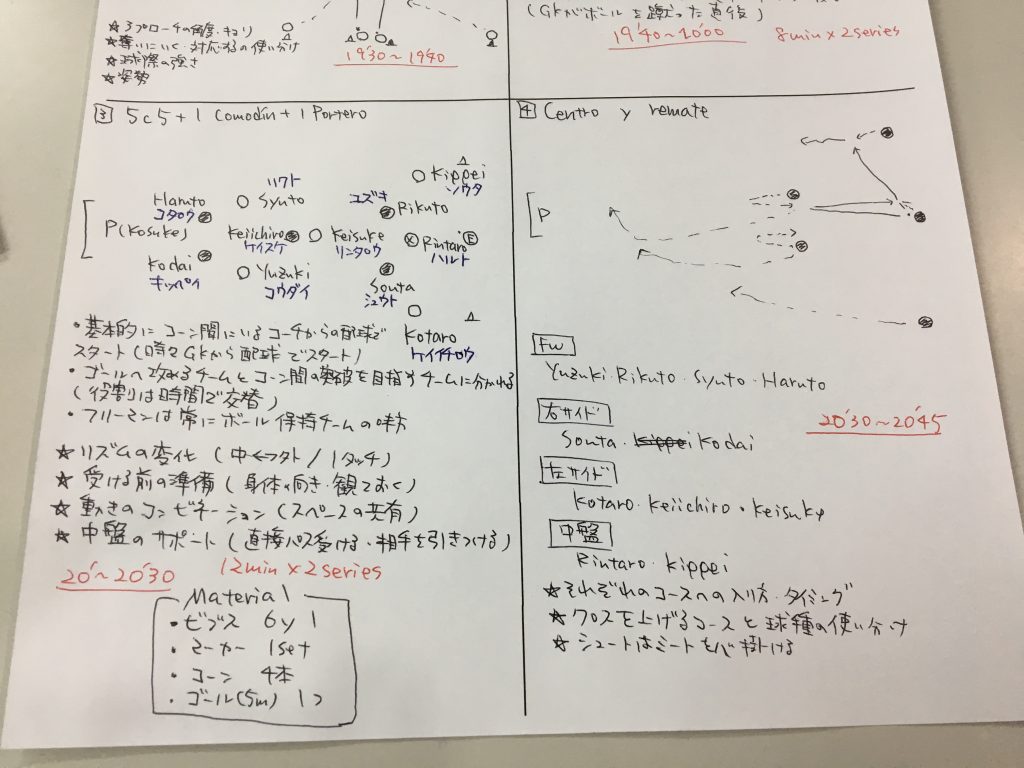 ☆ アプローチの角度・キョリ
☆ 奪いにいく・対応するの使い分け
☆ 球際の強さ
☆ 姿勢
19'30～1940
(GKがボールを蹴った直後)
19'40～20'00
8min×2series
3 5c5+1 Comodin+1 Portero
Kippei
ソウタ
ハルト
Haruto
コタロウ
Syuto
ユズキ
Rikuto
P(Kosuke)
Keiichiro
ケイスケ
Keisuke
リンタロウ
Rintaro
E
ハルト
Kodai
キッペイ
Yuzuki
コウダイ
Souta
シュウト
Kotaro
ケイイチロウ
・基本的にコーン間にいるコーチからの配球で
スタート(時々GKから配球でスタート)
・ゴールへ攻めるチームとコーン間の突破を目指すチームに分かれる
(役割りは時間で交替)
・フリーマンは常にボール保持チームの味方
☆ リズムの変化 (中⇔外 / 1タッチ)
☆ 受ける前の準備 (身体の向き・観ておく)
☆ 動きのコンビネーション (スペースの共有)
☆ 中盤のサポート (直接パス受ける・相手を引きつける)
20'～20'30
12min×2series
Material
・ビブス 6 y 1
・マーカー 1set
・コーン 4本
・ゴール(5m) 1つ
4 Centro y remate
P
FW
Yuzuki・Rikuto・Syuto・Haruto
20'30～20'45
右サイド
Souta・Kippei Kodai
左サイド
Kotaro・Keiichiro・Keisuke
中盤
Rintaro・Kippei
☆それぞれのコースへの入り方・タイミング
☆クロスを上げるコースと球種の使い分け
☆シュートはミートを心掛ける